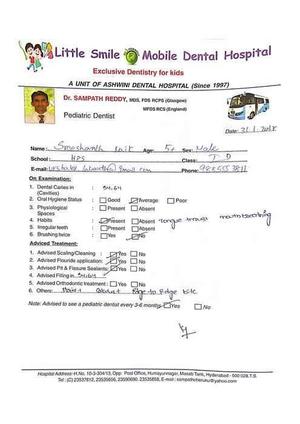 Little Smile Mobile Dental Hospital
Exclusive Dentistry for kids
A UNIT OF ASHWINI DENTAL HOSPITAL (Since 1997)
Dr. SAMPATH REDDY, MDS, FDS RCPS (Glasgow)
MFDS RCS (England)
Pediatric Dentist
Date:
Name: Age: 5+ Sex: Male
School: HPS Class: I D
E-mail: Phone:
On Examination:
1. Dental Caries in 54.64
(Cavities)
2. Oral Hygiene Status Good Average Poor
3. Physiological Present Absent
Spaces
4. Habits Present Absent Tongue thrust mouth breathing
5. Irregular teeth Present Absent
6. Brushing twice Yes No
Adviced Treatment:
1. Advised Scaling/Cleaning: Yes No
2. Advised Flouride application: Yes No
3. Advised Pit & Fissure Sealents: Yes No
4. Advised Filling in 54.64
5. Advised Orthodontic treatment: Yes No
6. Others: Edge to Edge bite
Note: Advised to see a pediatric dentist every 3-6 months Yes No
Hospital Address: H.No. 10-3-304/13, Opp. Post Office, Humayunnagar, Masab Tank, Hyderabad - 500 028.T.S.